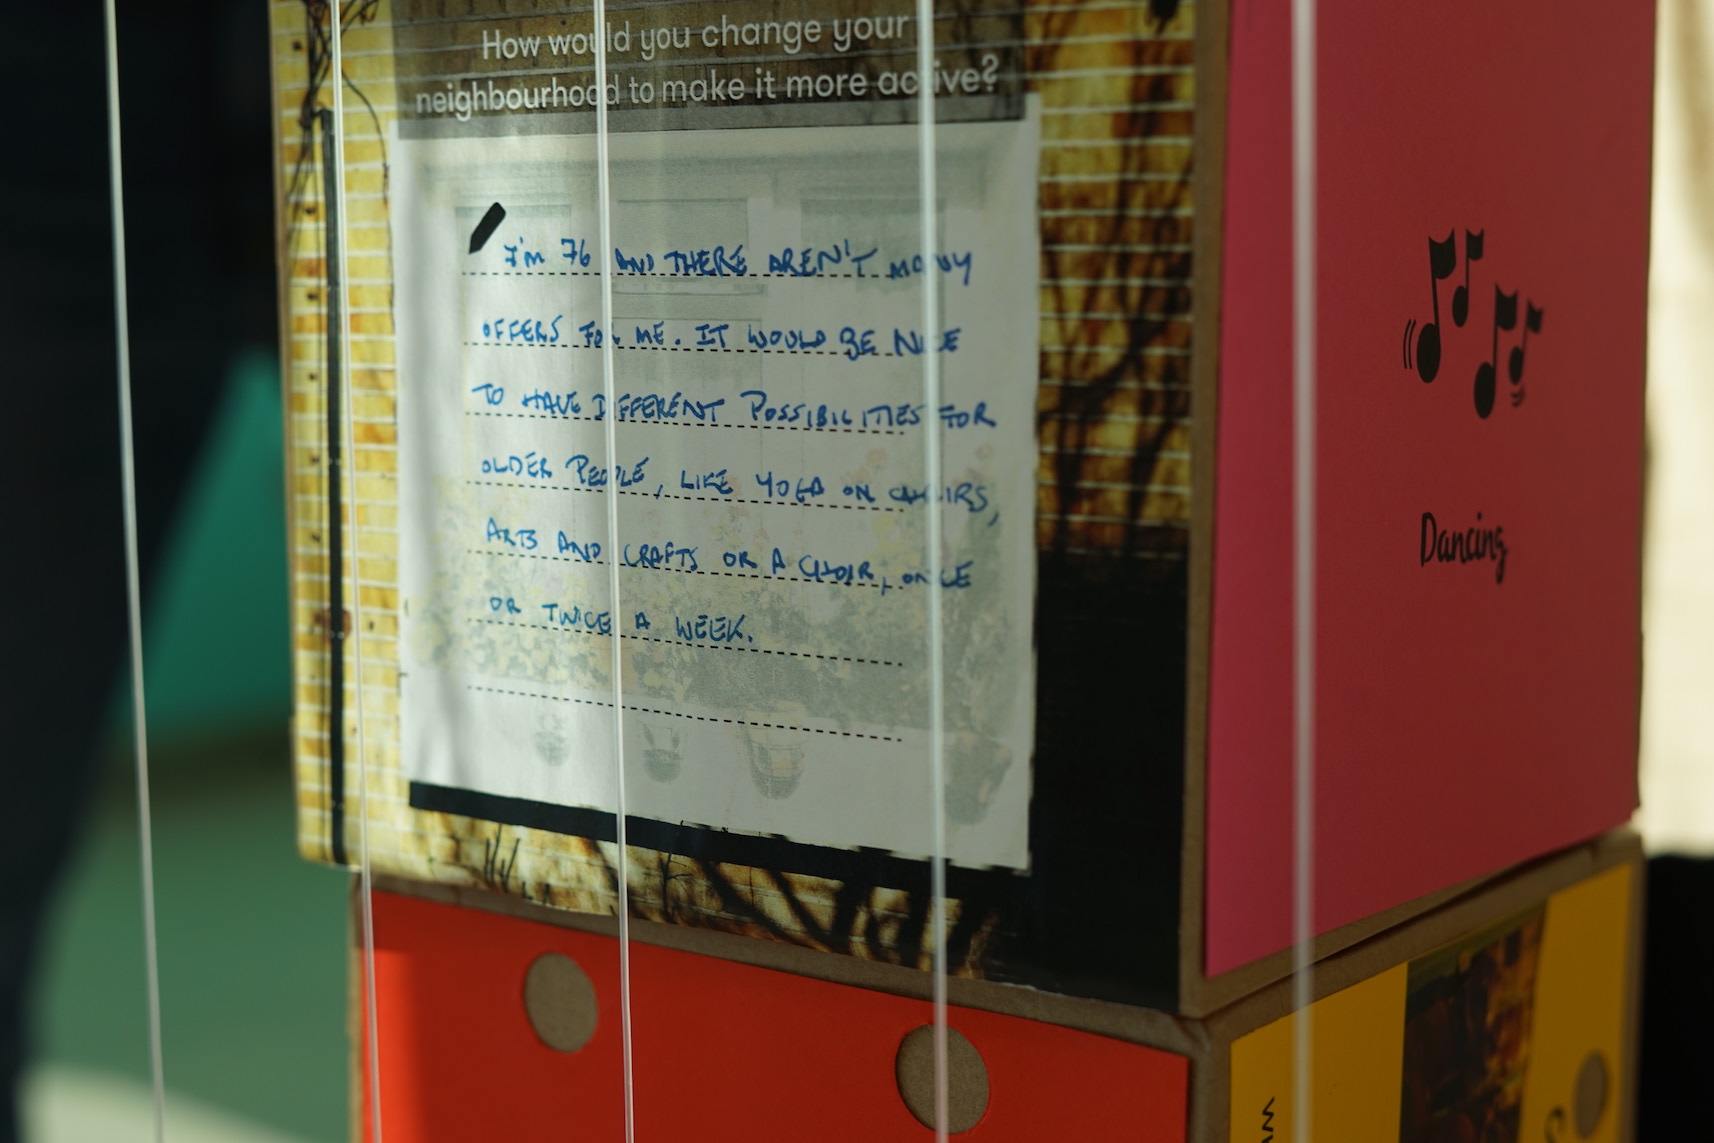 How would you change your
neighbourhood to make it more active?
I'm 76 AND THERE AREN'T MANY
OFFERS FOR ME. IT WOULD BE NICE
TO HAVE DIFFERENT POSSIBILITIES FOR
OLDER PEOPLE, LIKE YOGA ON CHAIRS,
ARTS AND CRAFTS OR A CHOIR, ONCE
OR TWICE A WEEK.
Dancing